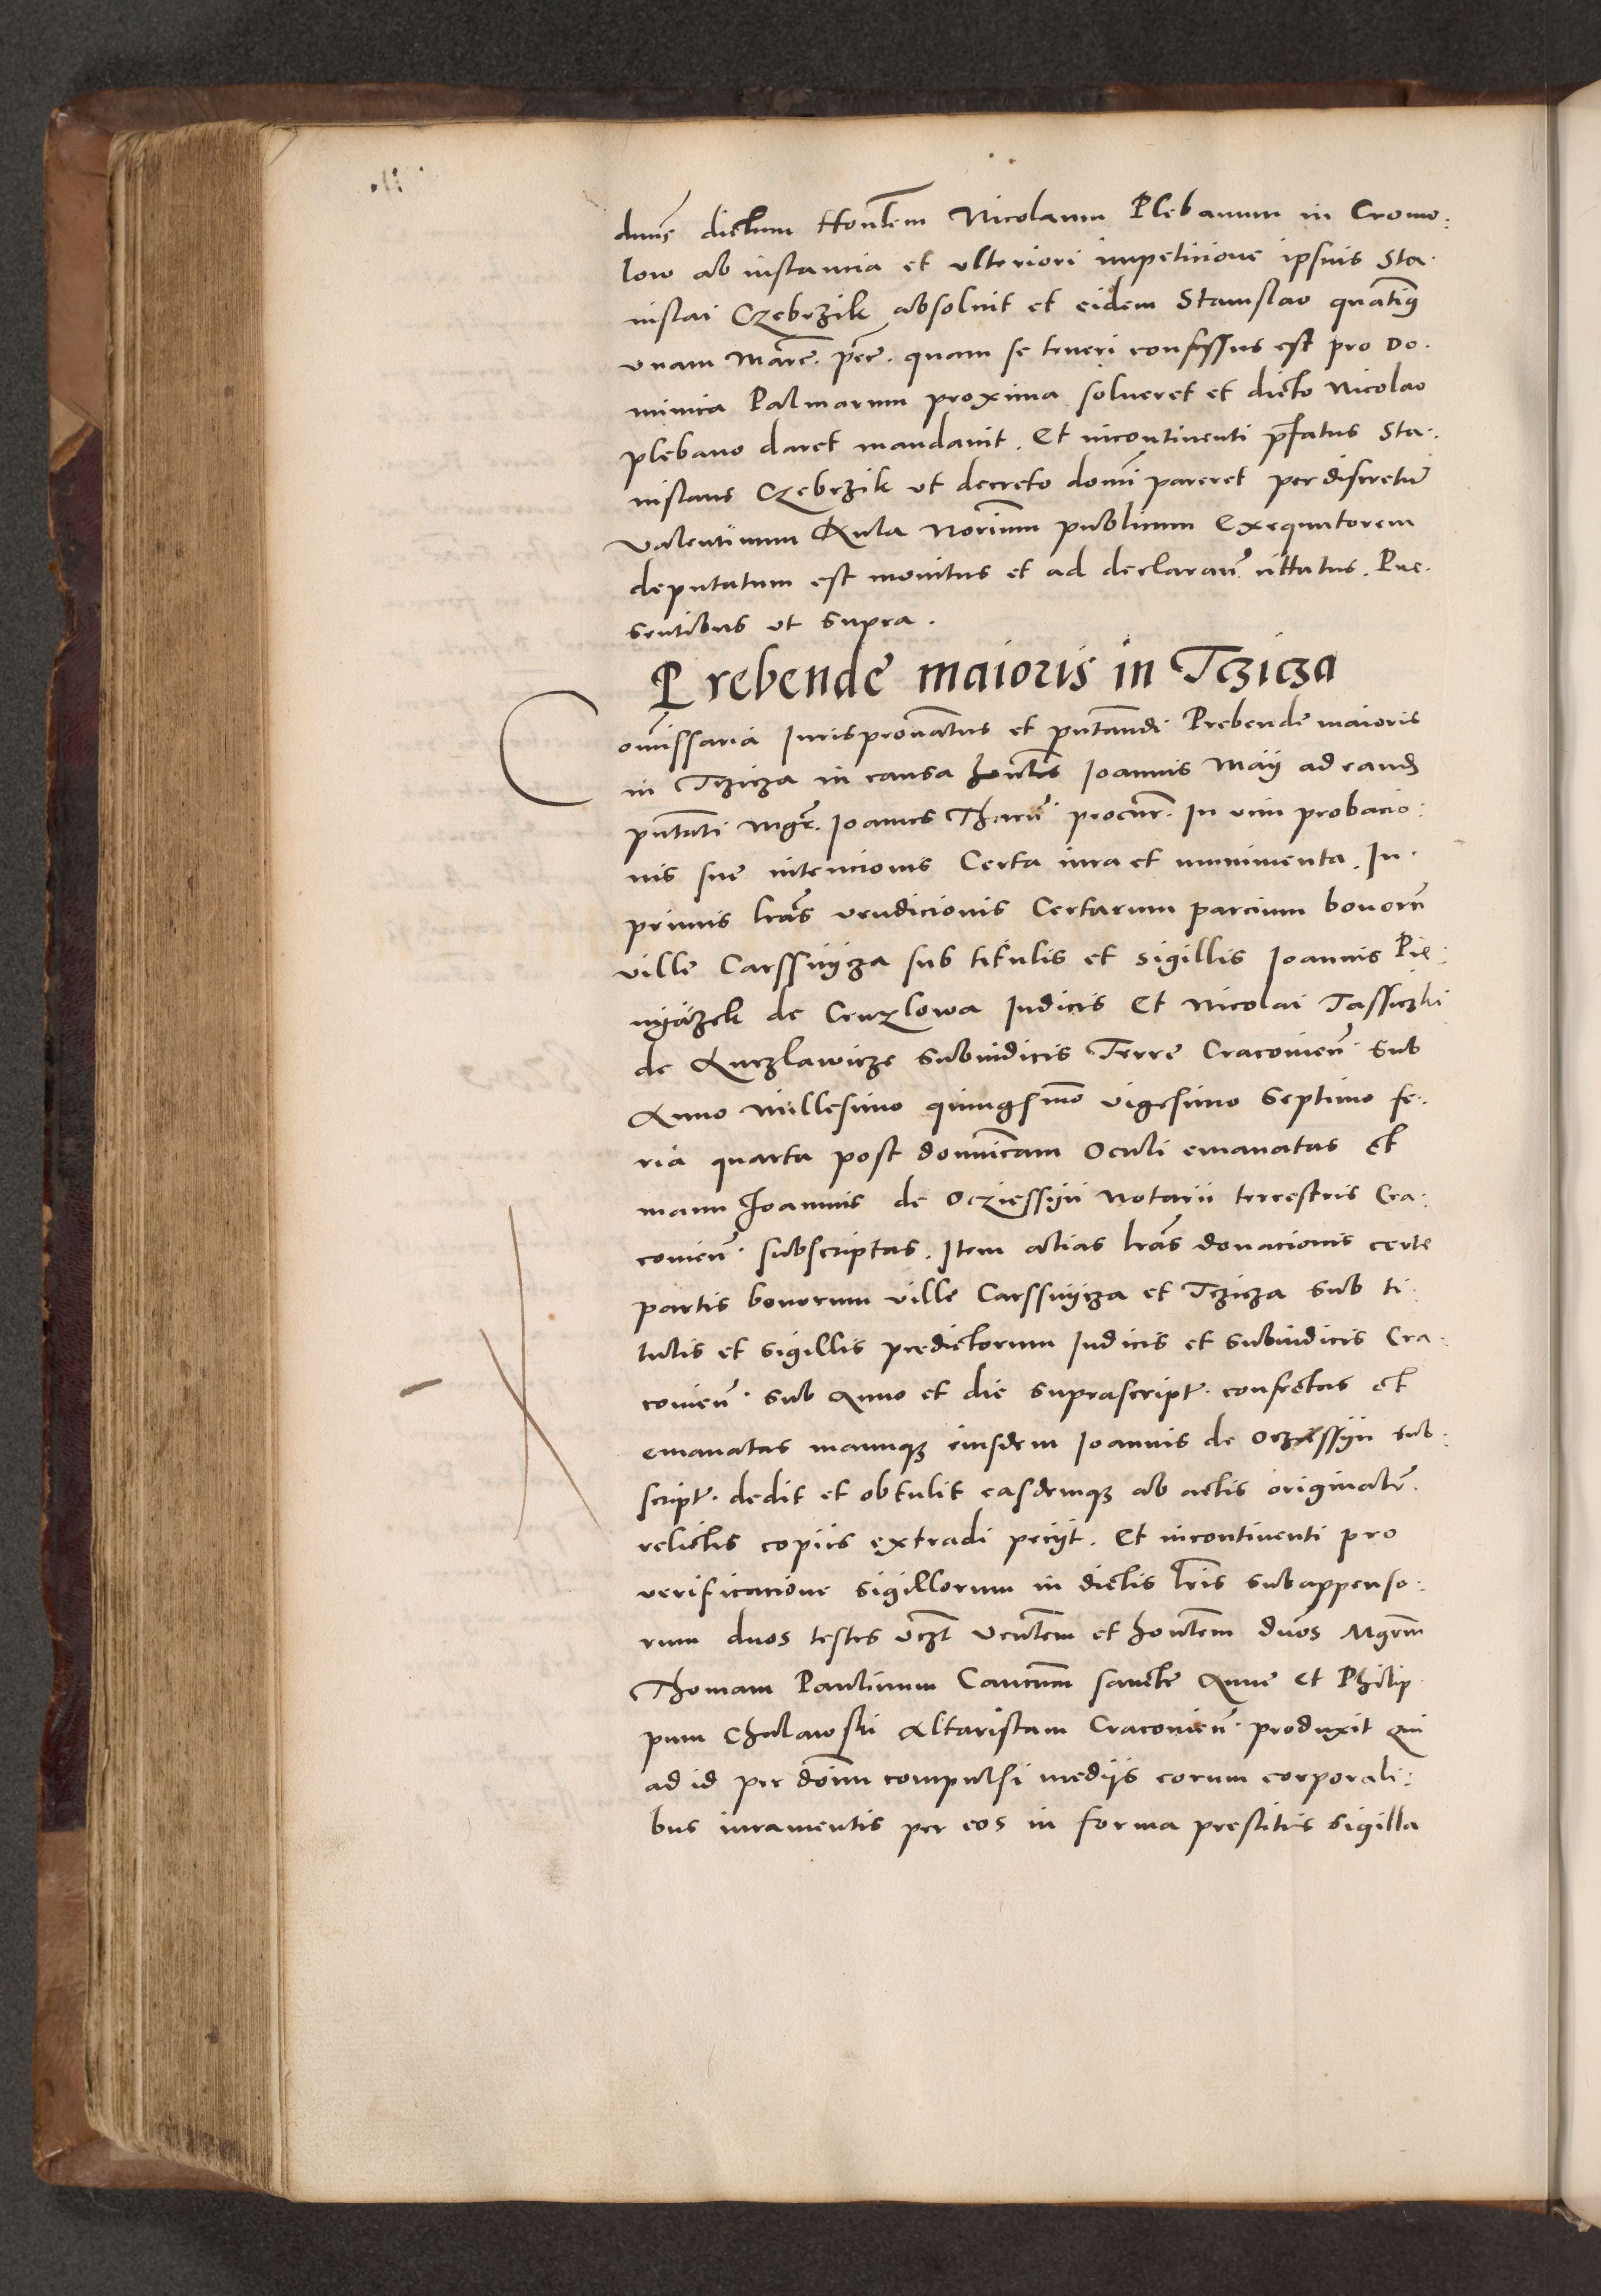 dnus dictum Honlem Nicolaum Plebanum in Cromo:
low ab instancia et ulteriori impeticione ipsius Sta·
nislai Czebrzik absolvit et eidem Stanislao quatinus
unam Marc. pec. quam se teneri confessus est pro Do·
minica Palmarum proxima solueret et dicto Nicolao
plebano daret mandavit. Et incontinenti prefatus Sta:
nislaus Czebrzik ut decreto domini pareret per discretum
Valentinum Kula Norium publicum Exequutorem
deputatum est monitus et ad declaran. cittatus. Pre·
sentibus ut supra.
Prebende maioris in Tczicza
Comissaria Jurispronatus et pntandi Prebende maioris
in Tczicza in causa honlis Joannis Maij ad eand
pntati Mgr. Joannes procur. In vim probacio:
nis sue intencionis Certa iura et munimenta. In·
primis lras vendicionis Certarum parcium bonorum
ville Carssnycza sub titulis et sigillis Joannis Pie:
nyazek de Cruzlowa Judicis Et Nicolai Jassiczki
de Kuczlawicze Subiudicis Terre Cracovien. Sub
Anno Millesimo quingesimo vigesimo Septimo fe:
ria quarta post dominicam Oculi emanatas et
manu Joannis de Ocziessyn Notarii terrestris Cra:
covien. subscriptas. Item alias lras donacionis certe
partis bonorum ville Carssnycza et Tczicza sub ti:
tulis et sigillis predictorum Judicis et Subiudicis Cra:
covien. sub Anno et die suprascript. confectas et
emanatas manuque eiusdem Joannis de Oczessyn sub:
script. dedit et obtulit easdemque ab actis originalr.
relictis copiis extradi peciit. Et incontinenti pro
verificacione sigillorum in dictis lris subappenso:
rum duos testes vczt venlem et honlem dnos Mgrum
Thomam Paulinum Canicum sancte Anne et Philip
pum Chalawski Altaristam Cracovien. produxit qui
ad id per domnu compulsi mediis eorum corporali:
bus iuramentis per eos in forma prestitis sigilla